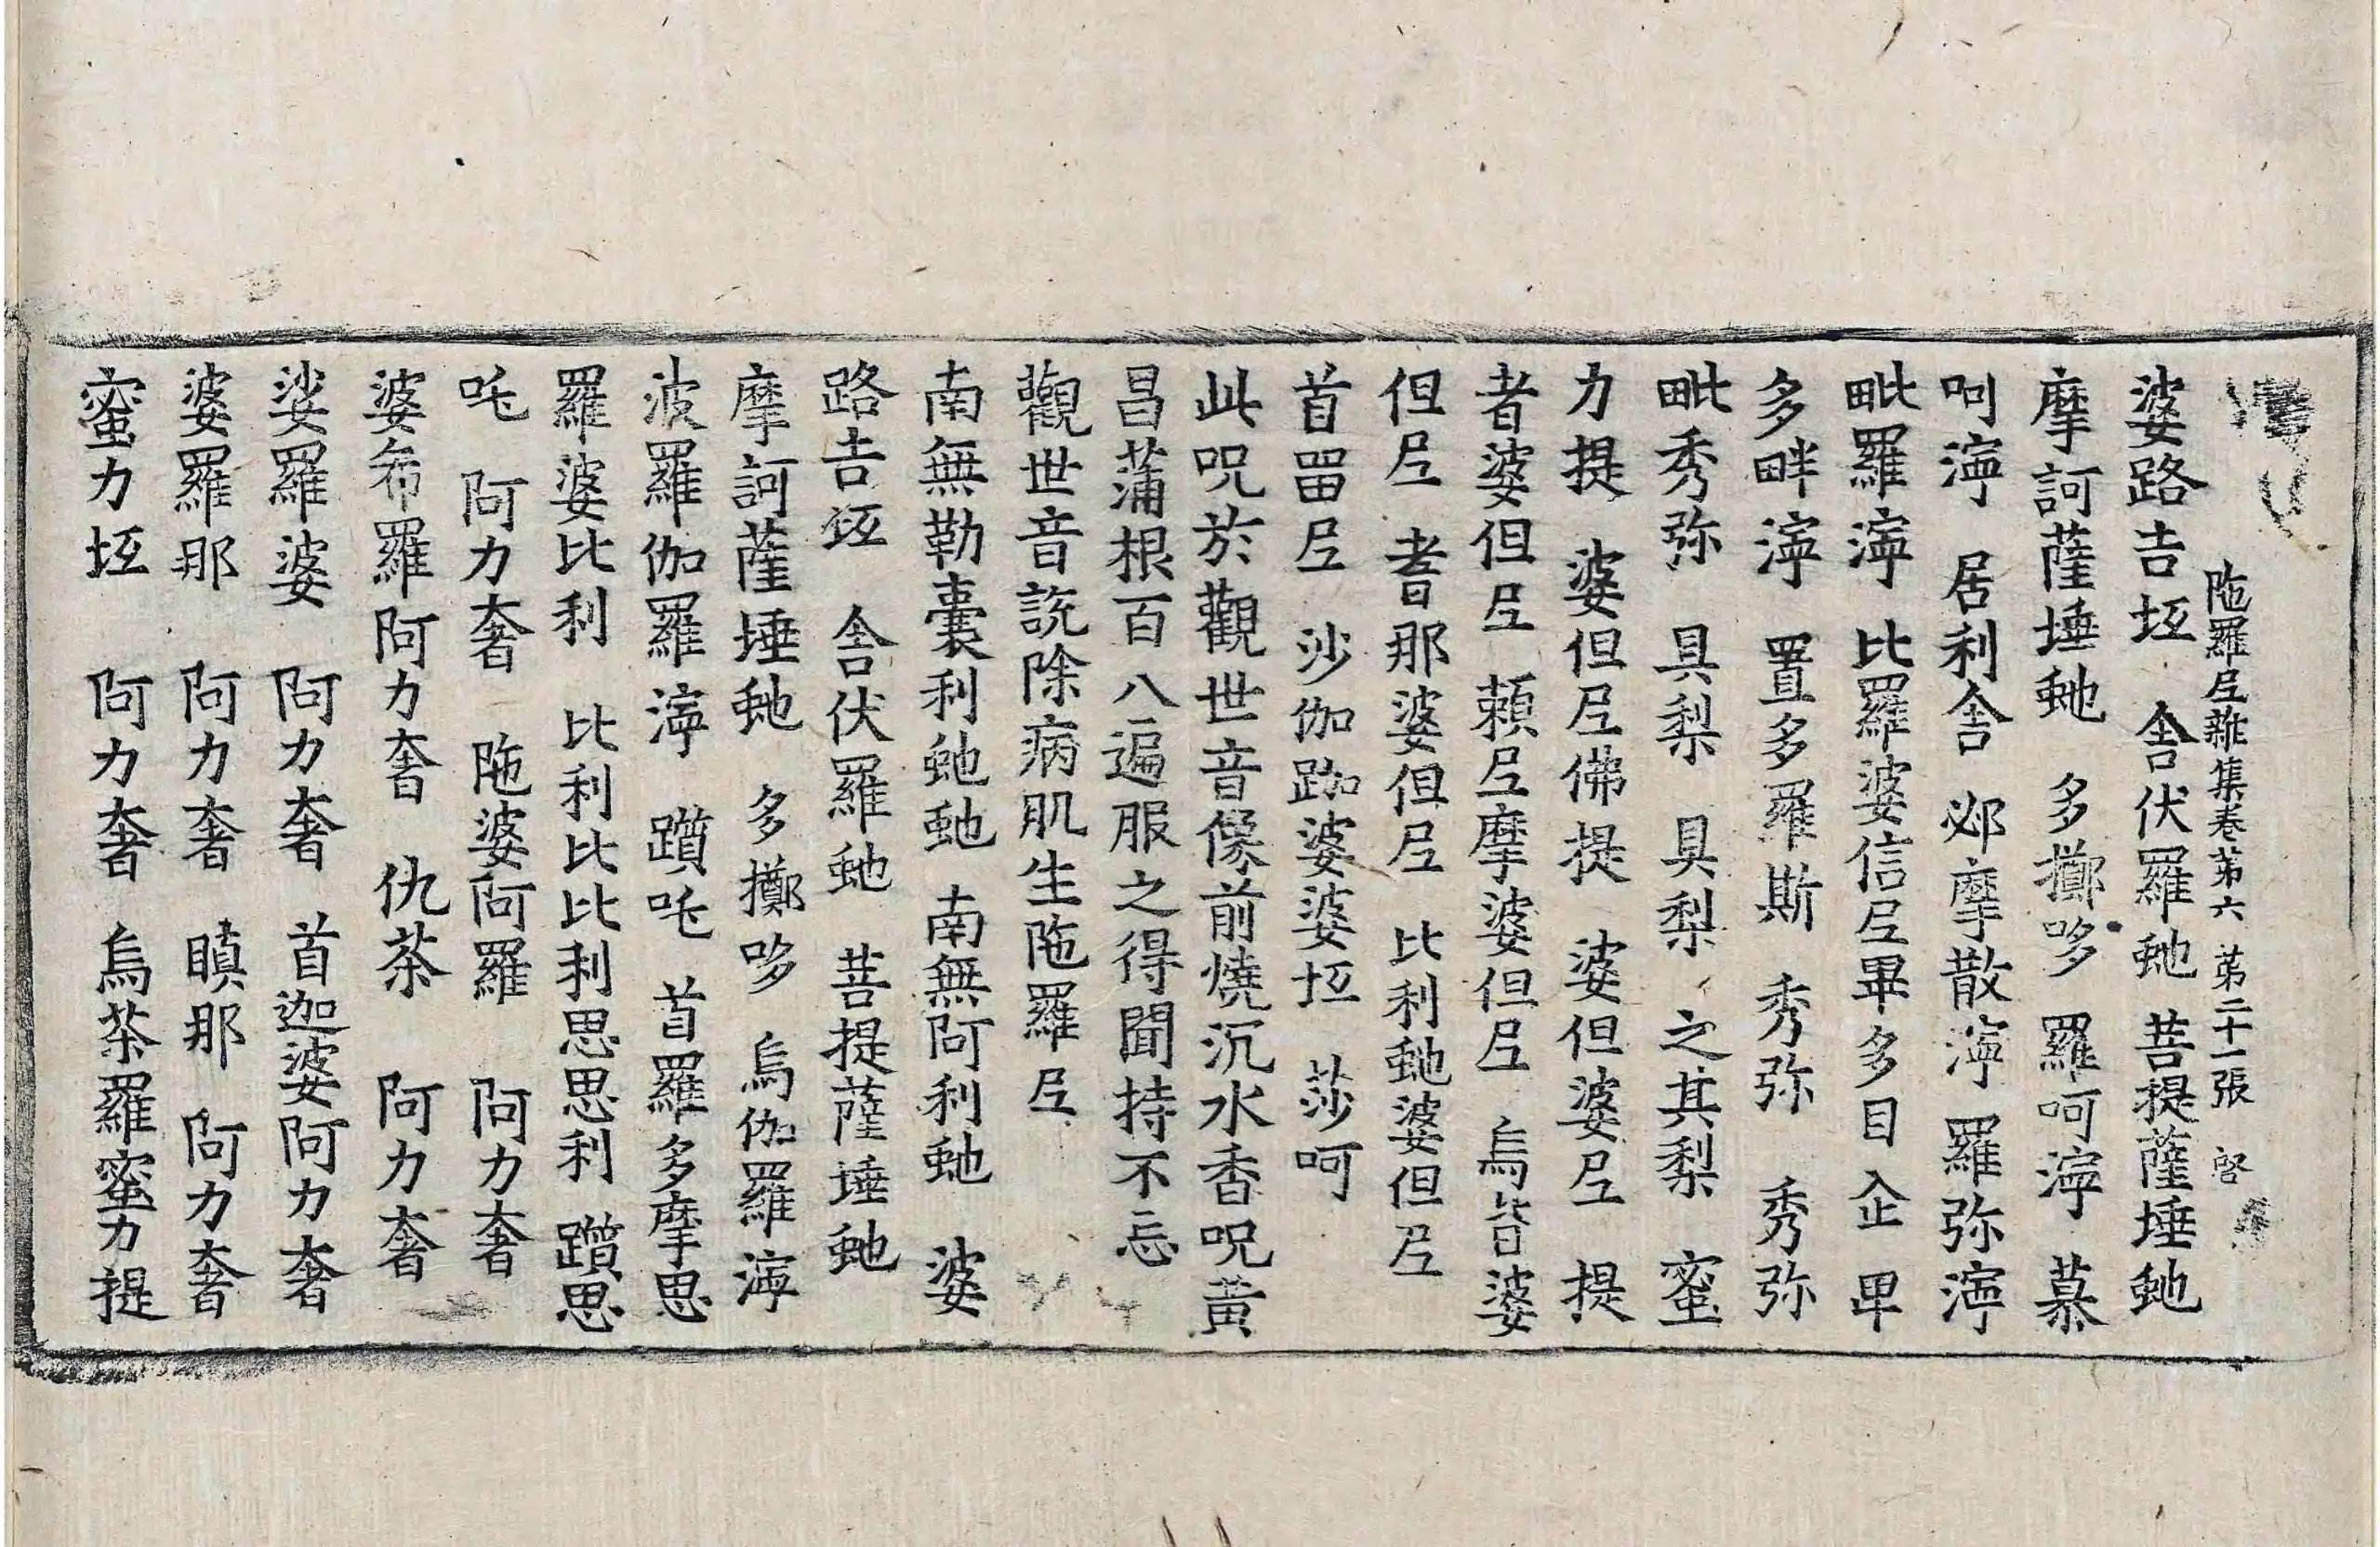 陁羅尼雜集卷苐六 苐二十一張 啓
婆路吉坘 舍伏羅虵 菩提薩埵虵
摩訶薩埵虵 多擲哆 羅呵濘 慕
呵濘 居利舍 邲摩散濘 羅弥濘
毗羅濘 比羅婆信尼畢多目企 㽙
多畔濘 置多羅斯 秀弥 秀弥
毗秀弥 具梨 具梨 之其梨 蜜
力提 婆但尼佛提 婆但婆尼 提
者婆但尼 賴尼摩婆但尼 烏呰婆
但尼 耆那婆但尼 比利虵婆但尼
首畱尼 沙伽跏婆婆坘 莎呵
此呪於觀世音像前燒沉水香呪黃
昌蒲根百八遍服之得聞持不忘
觀世音說除病肌生陁羅尼
南無勒囊利虵虵 南無阿利虵 婆
路吉坘 舍伏羅虵 菩提薩埵虵
摩訶薩埵虵 多擲哆 烏伽羅濘
波羅伽羅濘 躓吒 首羅多摩思
羅婆比利 比利比比利思思利 躓思
吒 阿力奢 陁婆阿羅 阿力奢
婆希羅阿力奢 仇茶 阿力奢
娑羅婆 阿力奢 首迦婆阿力奢
婆羅那 阿力奢 瞋那 阿力奢
蜜力坘 阿力奢 烏茶羅蜜力提